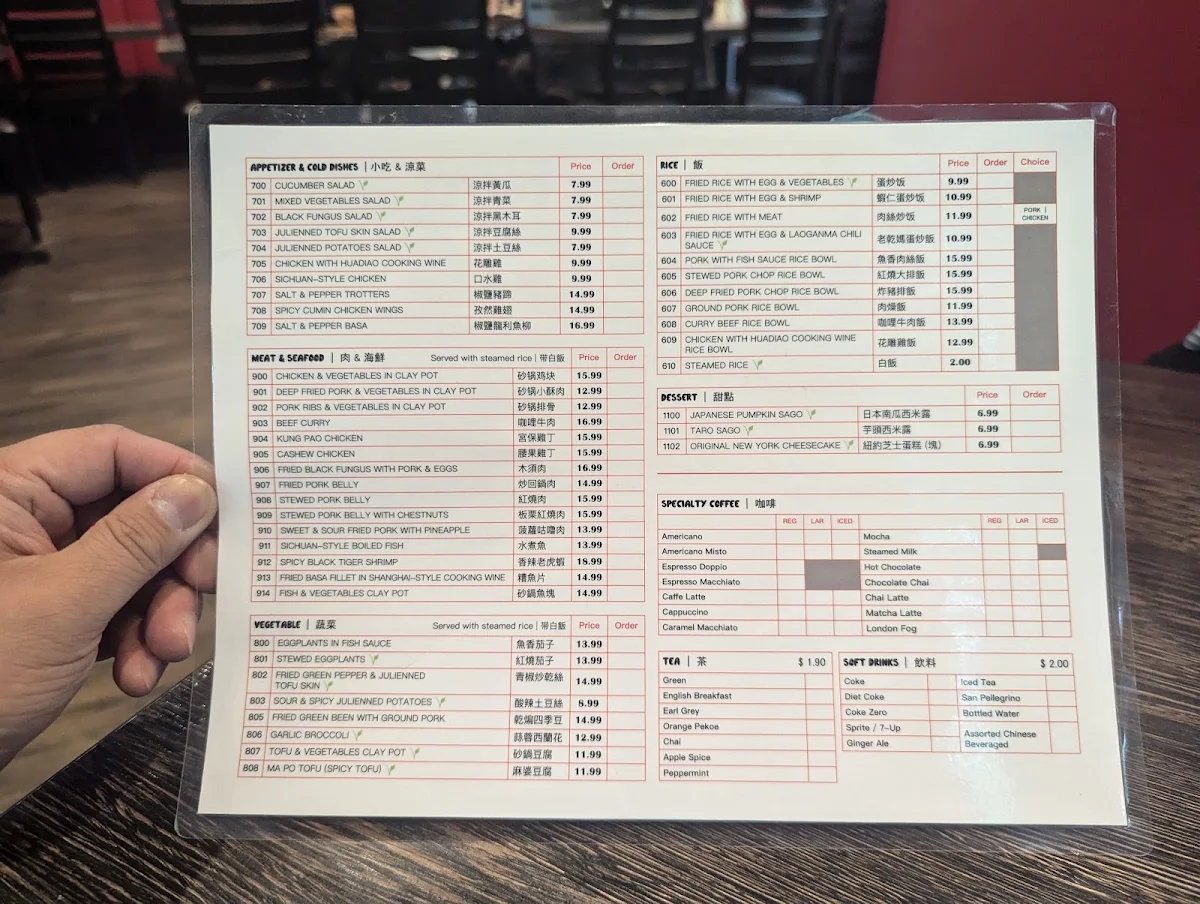 APPETIZER & COLD DISHES | 小吃 & 涼菜 Price Order
700 CUCUMBER SALAD 涼拌黃瓜 7.99
701 MIXED VEGETABLES SALAD 涼拌青菜 7.99
702 BLACK FUNGUS SALAD 涼拌黑木耳 7.99
703 JULIENNED TOFU SKIN SALAD 涼拌豆腐絲 9.99
704 JULIENNED POTATOES SALAD 涼拌土豆絲 7.99
705 CHICKEN WITH HUADIAO COOKING WINE 花雕雞 9.99
706 SICHUAN-STYLE CHICKEN 口水雞 9.99
707 SALT & PEPPER TROTTERS 椒鹽豬蹄 14.99
708 SPICY CUMIN CHICKEN WINGS 孜然雞翅 14.99
709 SALT & PEPPER BASA 椒鹽龍利魚柳 16.99
MEAT & SEAFOOD | 肉 & 海鮮 Served with steamed rice | 带白飯 Price Order
900 CHICKEN & VEGETABLES IN CLAY POT 砂锅鸡块 15.99
901 DEEP FRIED PORK & VEGETABLES IN CLAY POT 砂锅小酥肉 12.99
902 PORK RIBS & VEGETABLES IN CLAY POT 砂锅排骨 12.99
903 BEEF CURRY 咖哩牛肉 16.99
904 KUNG PAO CHICKEN 宮保雞丁 15.99
905 CASHEW CHICKEN 腰果雞丁 15.99
906 FRIED BLACK FUNGUS WITH PORK & EGGS 木須肉 16.99
907 FRIED PORK BELLY 炒回鍋肉 14.99
908 STEWED PORK BELLY 紅燒肉 15.99
909 STEWED PORK BELLY WITH CHESTNUTS 板栗紅燒肉 15.99
910 SWEET & SOUR FRIED PORK WITH PINEAPPLE 菠蘿咕嚕肉 13.99
911 SICHUAN-STYLE BOILED FISH 水煮魚 13.99
912 SPICY BLACK TIGER SHRIMP 香辣老虎蝦 18.99
913 FRIED BASA FILLET IN SHANGHAI-STYLE COOKING WINE 糟魚片 14.99
914 FISH & VEGETABLES CLAY POT 砂鍋魚塊 14.99
VEGETABLE | 蔬菜 Served with steamed rice | 带白飯 Price Order
800 EGGPLANTS IN FISH SAUCE 魚香茄子 13.99
801 STEWED EGGPLANTS 紅燒茄子 13.99
802 FRIED GREEN PEPPER & JULIENNED
TOFU SKIN 青椒炒乾絲 14.99
803 SOUR & SPICY JULIENNED POTATOES 酸辣土豆絲 8.99
805 FRIED GREEN BEEN WITH GROUND PORK 乾煸四季豆 14.99
806 GARLIC BROCCOLI 蒜蓉西蘭花 12.99
807 TOFU & VEGETABLES CLAY POT 砂鍋豆腐 11.99
808 MA PO TOFU (SPICY TOFU) 麻婆豆腐 11.99
RICE | 飯 Price Order Choice
600 FRIED RICE WITH EGG & VEGETABLES 蛋炒饭 9.99
601 FRIED RICE WITH EGG & SHRIMP 蝦仁蛋炒飯 10.99
602 FRIED RICE WITH MEAT 肉絲炒飯 11.99 PORK |
CHICKEN
603 FRIED RICE WITH EGG & LAOGANMA CHILI
SAUCE 老乾媽蛋炒飯 10.99
604 PORK WITH FISH SAUCE RICE BOWL 魚香肉絲飯 15.99
605 STEWED PORK CHOP RICE BOWL 紅燒大排飯 15.99
606 DEEP FRIED PORK CHOP RICE BOWL 炸豬排飯 15.99
607 GROUND PORK RICE BOWL 肉燥飯 11.99
608 CURRY BEEF RICE BOWL 咖哩牛肉飯 13.99
609 CHICKEN WITH HUADIAO COOKING WINE
RICE BOWL 花雕雞飯 12.99
610 STEAMED RICE 白飯 2.00
DESSERT | 甜點 Price Order
1100 JAPANESE PUMPKIN SAGO 日本南瓜西米露 6.99
1101 TARO SAGO 芋頭西米露 6.99
1102 ORIGINAL NEW YORK CHEESECAKE 紐約芝士蛋糕 (塊) 6.99
SPECIALTY COFFEE | 咖啡
REG LAR ICED REG LAR ICED
Americano Mocha
Americano Misto Steamed Milk
Espresso Doppio Hot Chocolate
Espresso Macchiato Chocolate Chai
Caffe Latte Chai Latte
Cappuccino Matcha Latte
Caramel Macchiato London Fog
TEA | 茶 $ 1.90
Green
English Breakfast
Earl Grey
Orange Pekoe
Chai
Apple Spice
Peppermint
SOFT DRINKS | 飲料 $ 2.00
Coke Iced Tea
Diet Coke San Pellegrino
Coke Zero Bottled Water
Sprite / 7-Up Assorted Chinese
Ginger Ale Beveraged